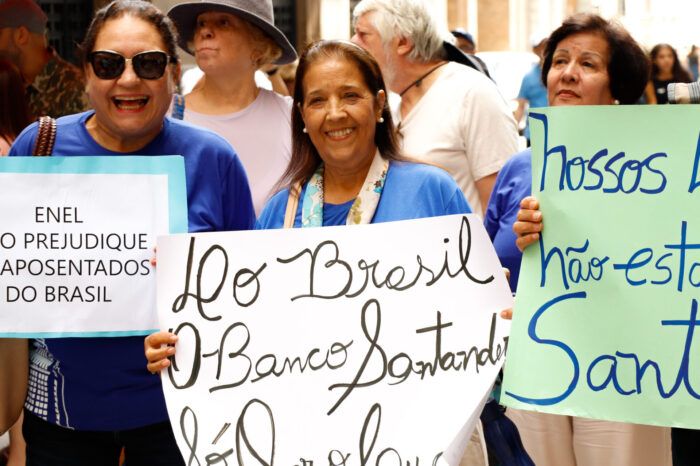 ENEL
O PREJUDIQUE
APOSENTADOS
DO BRASIL
Do Brasil,
O Banco Santander
Só
nossos
não
Sant